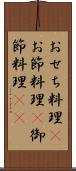 おせち料理
お節料理 御
節料理